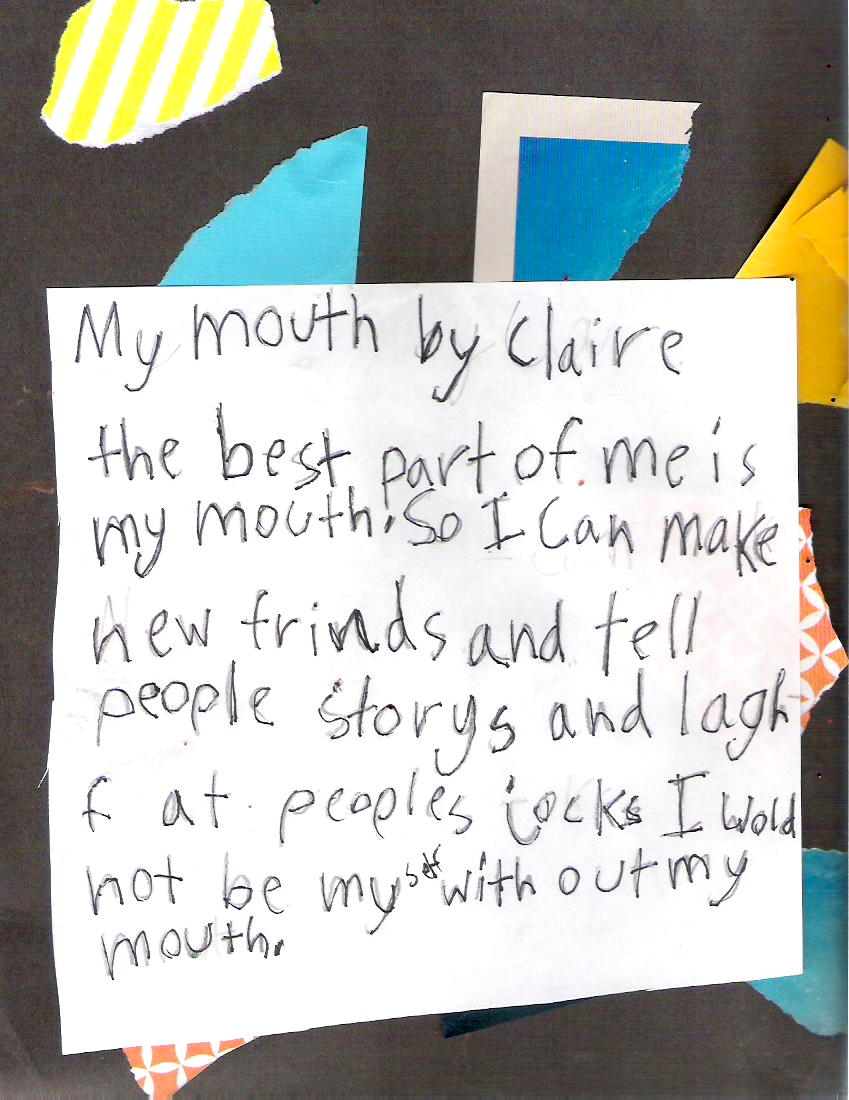 My mouth by Claire
the best part of me is
my mouth. So I Can make
new frinds and tell
people storys and lagh-
f at peoples jocks I wold
not be myself with out my
mouth.